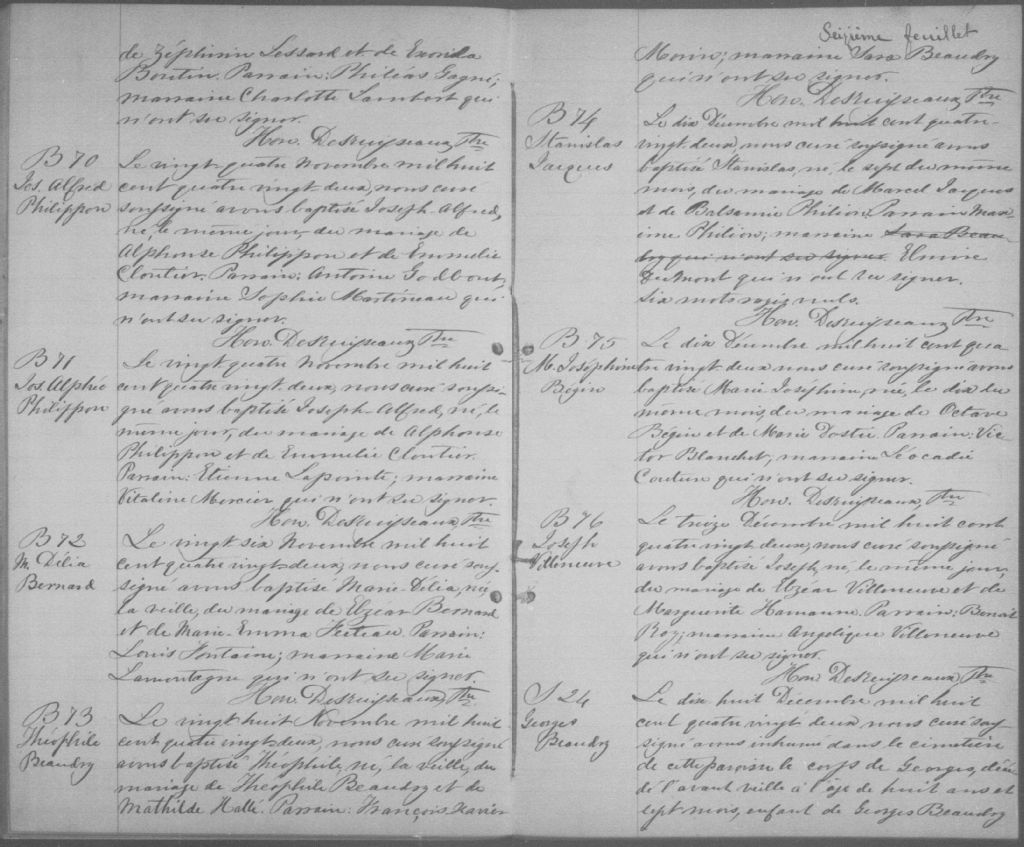 de Zéphirin Lessard et de Exorida
Boutin. Parrain: Philéas Gagné;
marraine Charlotte Lambert qui
n'ont su signer.
Hon. DesRuisseaux, Ptre
B 70
Jos. Alfred
Philippon
Le vingt-quatre Novembre mil huit
cent quatre vingt deux, nous curé
soussigné avons baptisé Joseph-Alfred,
né, le même jour, du mariage de
Alphonse Philippon et de Emmelie
Cloutier. Parrain: Antoine Godbout,
marraine Sophie Martineau qui
n'ont su signer.
Hon. DesRuisseaux Ptre
B 71
Jos. Alphée
Philippon
Le vingt-quatre Novembre mil huit
cent quatre vingt deux, nous curé soussi-
gné avons baptisé Joseph-Alfred, né, le
même jour, du mariage de Alphonse
Philippon et de Emmelie Cloutier.
Parrain: Etienne Lapointe; marraine
Vitaline Mercier qui n'ont su signer.
Hon. DesRuisseaux, Ptre
B 72
M. Délia
Bernard
Le vingt six Novembre mil huit
cent quatre vingt-deux, nous curé sous-
signé avons baptisé Marie-Délia, née
la veille, du mariage de Elzéar Bernard
et de Marie-Emma Feteau. Parrain:
Louis Fontaine; marraine Marie
Lamontagne qui n'ont su signer.
Hon. DesRuisseaux, Ptre
B 73
Théophile
Beaudry
Le vingt huit Novembre mil huit
cent quatre vingt-deux, nous curé soussigné
avons baptisé Théophile, né, la veille, du
mariage de Théophile Beaudry et de
Mathilde Hallé. Parrain: François Xavier
Seizième feuillet
Morin; marraine Sara Beaudry
qui n'ont su signer.
Hon. DesRuisseaux Ptre
B 74
Stanislas
Jacques
Le dix Décembre mil huit cent quatre-
vingt deux, nous curé soussigné avons
baptisé Stanislas, né, le sept du même
mois, du mariage de Marcel Jacques
et de Balsamie Philion. Parrain Max-
ime Philion; marraine Sara Beau-
dry qui n'ont su signer. Elmire
Dumont qui n'ont su signer.
Six mots rayés nuls.
Hon. DesRuisseaux Ptre
B 75
M. Joséphine
Bégin
Le dix Décembre mil huit cent qua
tre vingt deux nous curé soussigné avons
baptisé Marie Joséphine, née, le dix du
même mois, du mariage de Octave
Bégin et de Marie Dostie. Parrain: Vic-
tor Blanchet; marraine Léocadie
Couture qui n'ont su signer.
Hon. DesRuisseaux, Ptre
B 76
Joseph
Villeneuve
Le treize Décembre mil huit cent
quatre vingt deux, nous curé soussigné
avons baptisé Joseph, né, le même jour,
du mariage de Elzéar Villeneuve et de
Marguerite Hamann. Parrain: Benoit
Roy; marraine Angélique Villeneuve
qui n'ont su signer.
Hon. DesRuisseaux, Ptre
S 24
Georges
Beaudry
Le dix huit Décembre mil huit
cent quatre vingt deux nous curé sous
signé avons inhumé dans le cimetière
de cette paroisse le corps de Georges, décé-
dé l'avant veille à l'âge de huit ans et
sept mois, enfant de Georges Beaudry